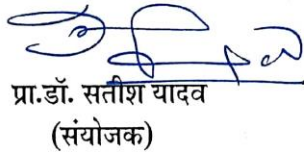 प्रा.डॉ. सतीश यादव
(संयोजक)